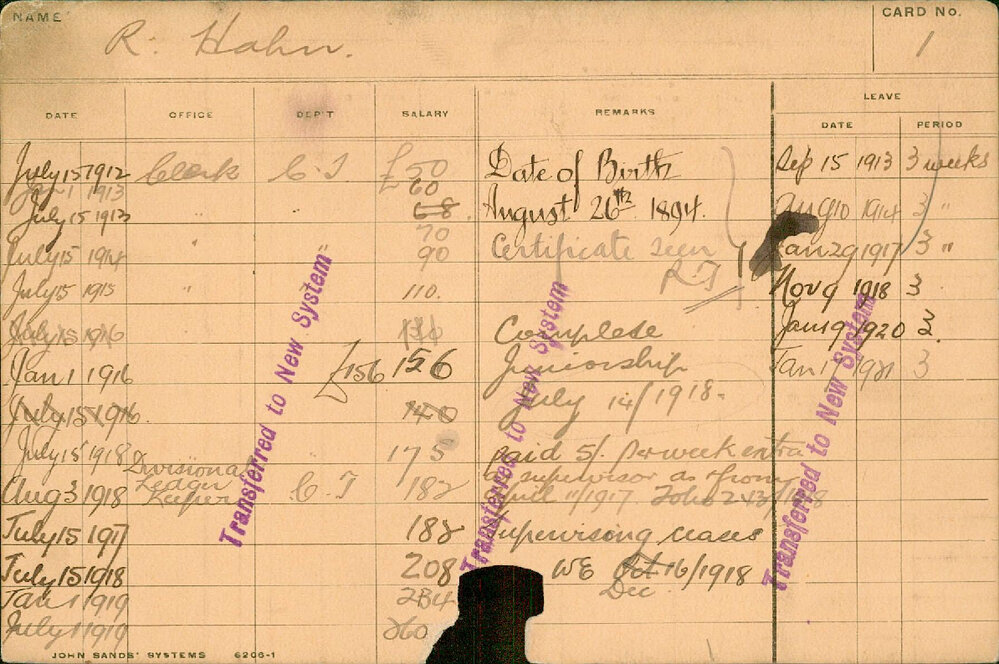 NAME
R. Hahn.
CARD No.
1
DATE OFFICE DEP'T SALARY REMARKS LEAVE
DATE PERIOD
July 15 1912 Clerk C.T £50 Date of Birth Sep 15 1913 3 weeks
Jan 1 1913 60
July 15 1913 " 68 August 26th 1894. Aug 10 1914 3 "
70
July 15 1914 " 90 Certificate seen Jan 29 1917 3 "
R.T
July 15 1915 " 110. Nov 9 1918 3
July 15 1916 130 Complete Jan 19 1920 2
Jan 1 1916 £156 156 Juniorship Jan 17 1921 3
July 15 1916. 140 July 14/1918.
July 15 1918 175 paid 5/. per week extra
Divisional
Ledger
Keeper
Aug 3 1918 C.T 182 as supervisor as from
April 11/1917
July 15 1917 182 Supervising ceases
July 15 1918 208 WE Oct 16/1918
Dec
Jan 1 1919 234
July 1 1919 260
Transferred to New System"
Transferred to New System
Transferred to New System
JOHN SANDS' SYSTEMS 6206-1